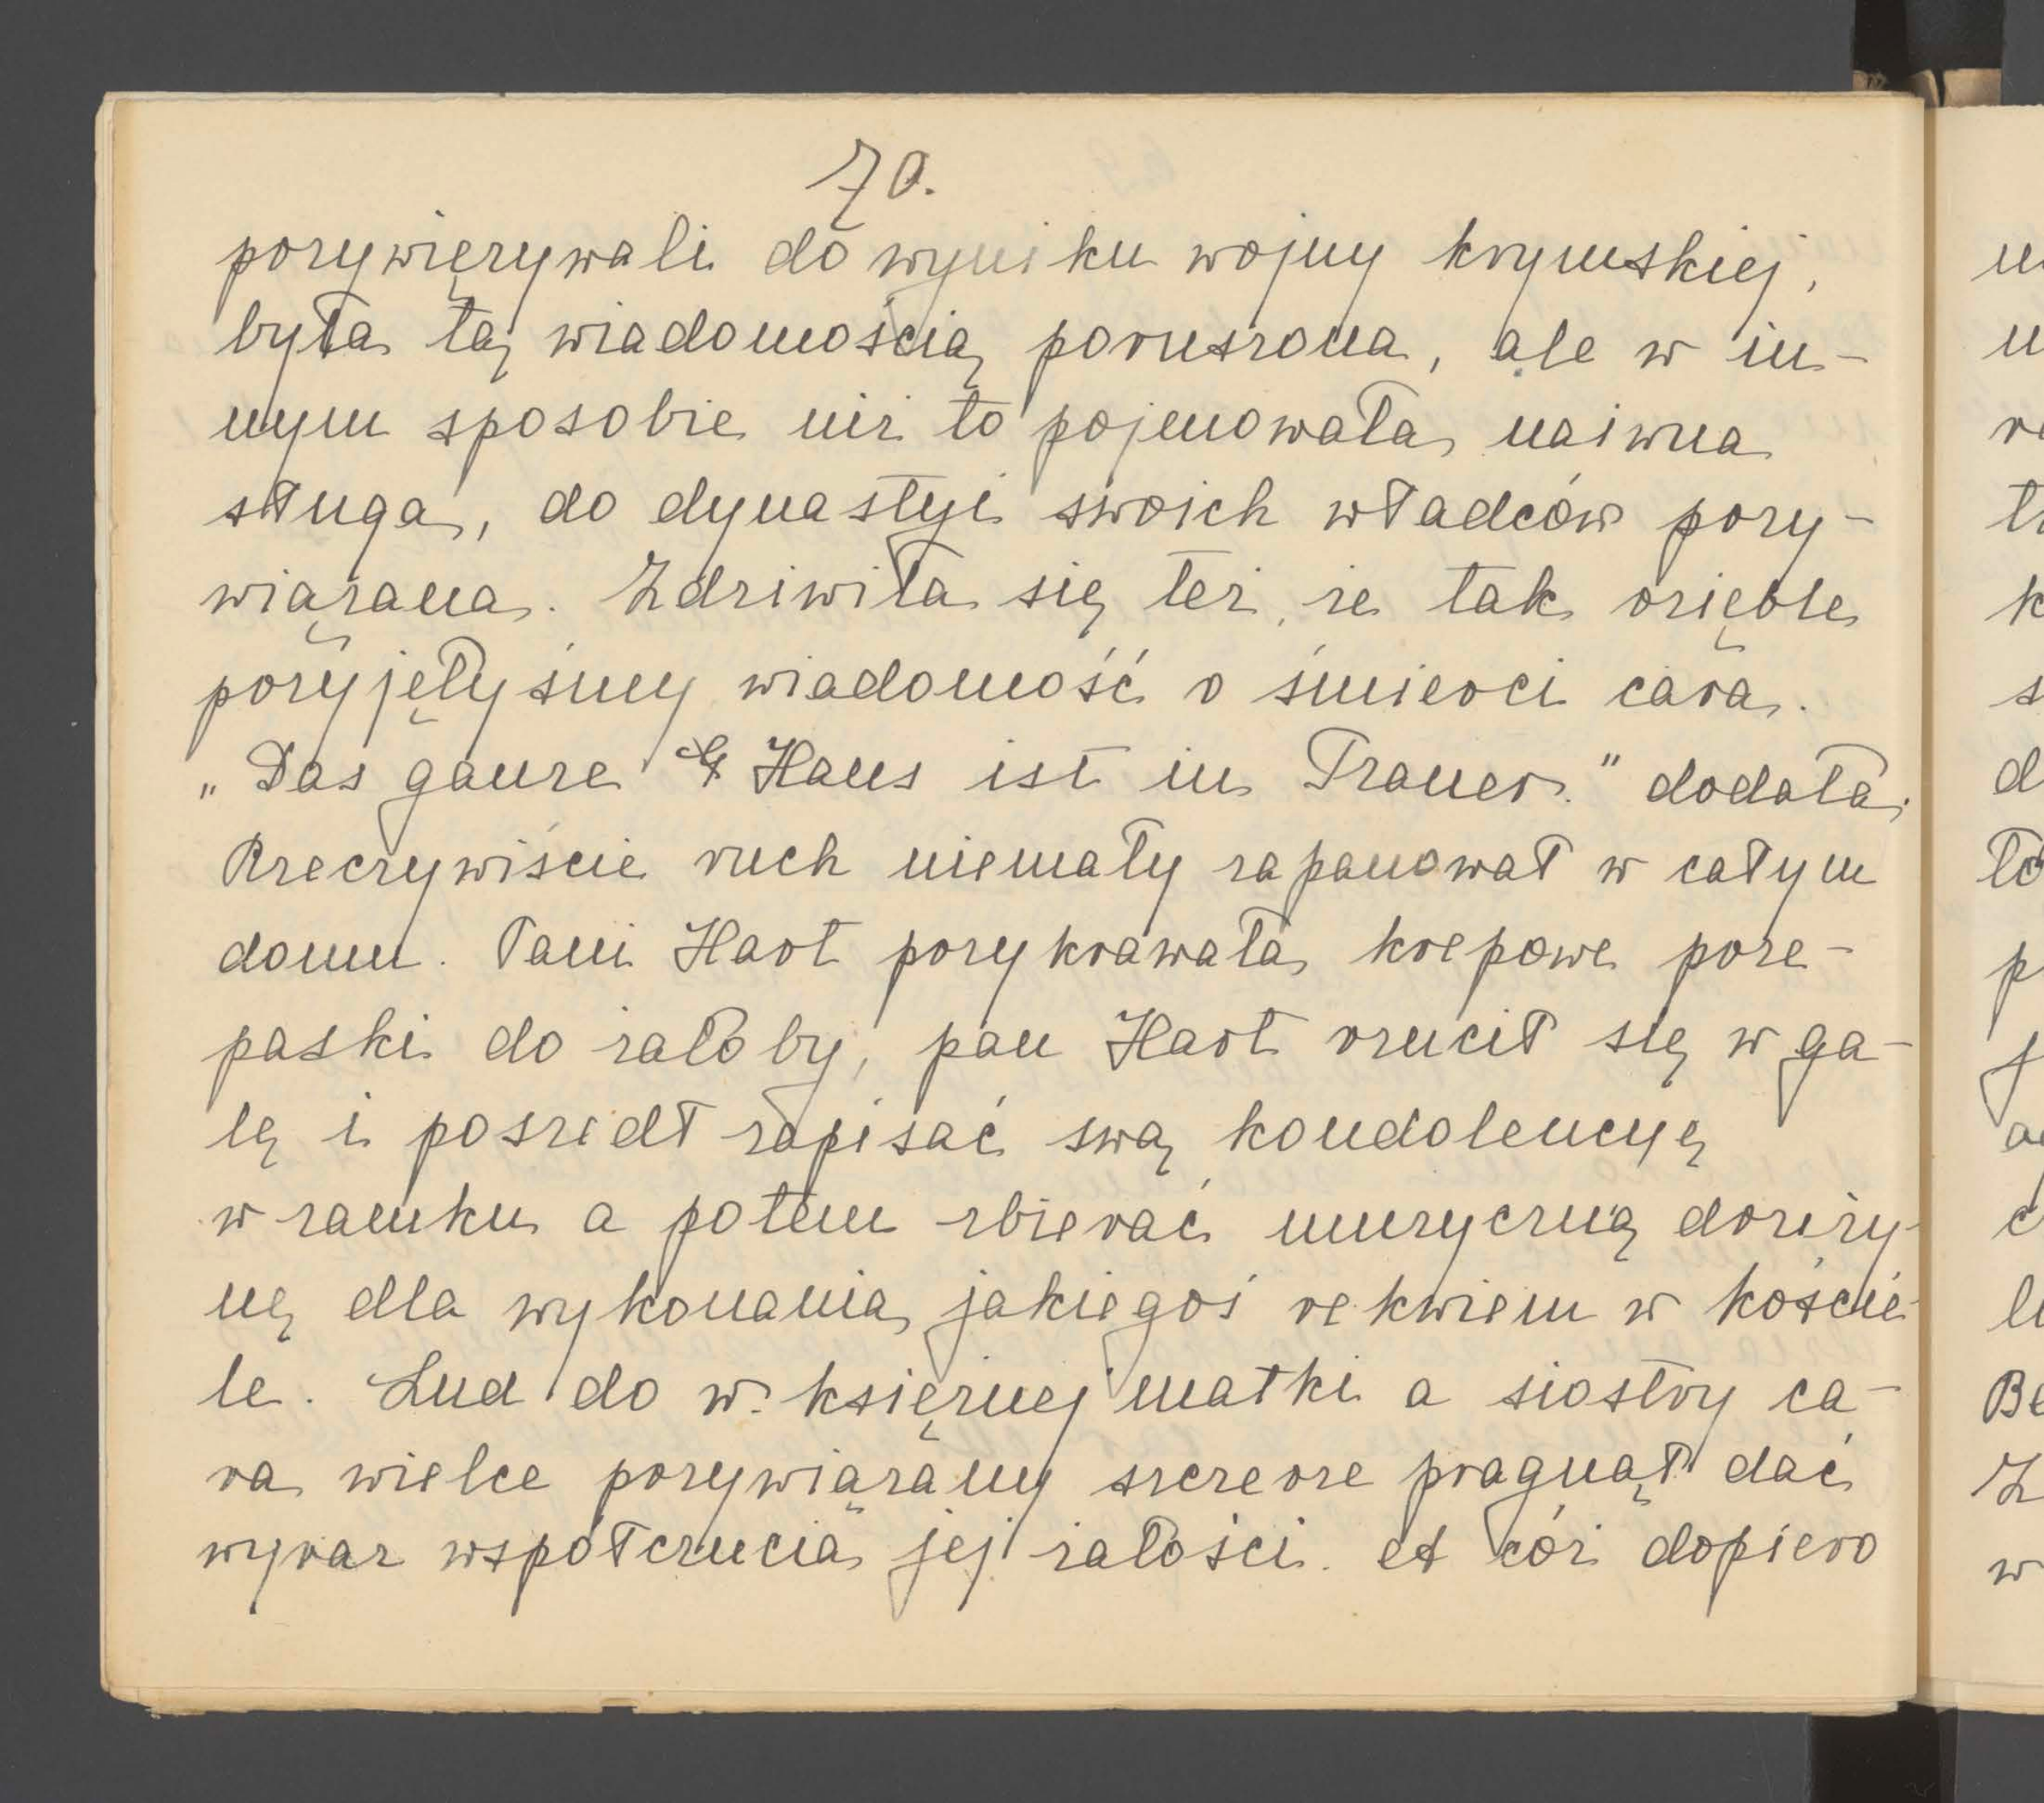 70.
przywięzywali do wyniku wojny krymskiej,
była tą wiadomością poruszona, ale w in-
nym sposobie niż to pojmowała naiwna
sługa, do dynastyi swoich władców przy-
wiązana. Zdziwiła się też, że tak ozięble
przyjęłyśmy wiadomość o śmierci cara.
„Das ganze Haus ist in Trauer." dodała.
Rzeczywiście ruch niemały zapanował w całym
domu. Pani Hart przykrawała krepowe prze-
paski do żałoby, pan Hart rzucił się w ga-
lę i poszedł zapisać swą kondolencyę
w zamku a potem zbierać muzyczną druży-
nę dla wykonania jakiegoś rekwiem w koście-
le. Lud do w. księżnej matki a siostry ca-
ra wielce przywiązany szczerze pragnął dać
wyraz współczucia jej żałości. A cóż dopiero